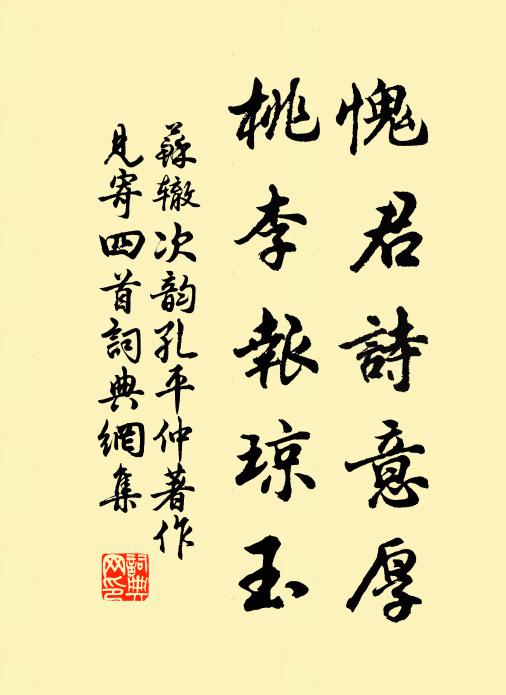 愧君詩意厚
桃李報琼玉
蘇辙次韵孔平仲著作
見寄四首詞典網集
詞典
网印